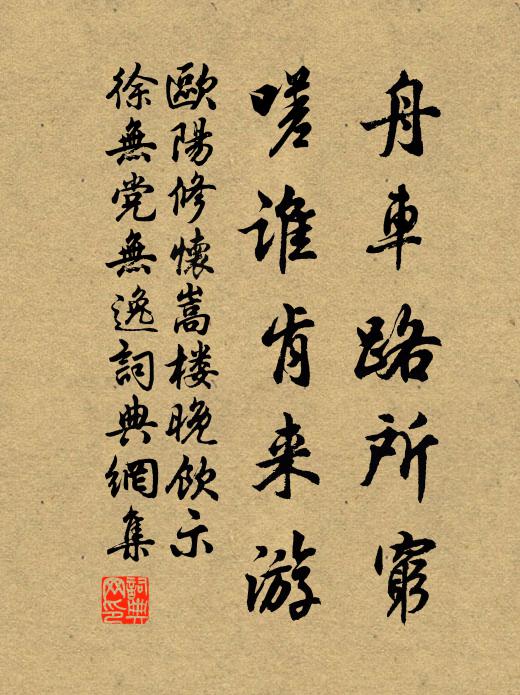 舟車路所窮
嗟谁肯来游
歐陽修懷嵩楼晚飲示
徐無党無逸詞典網集